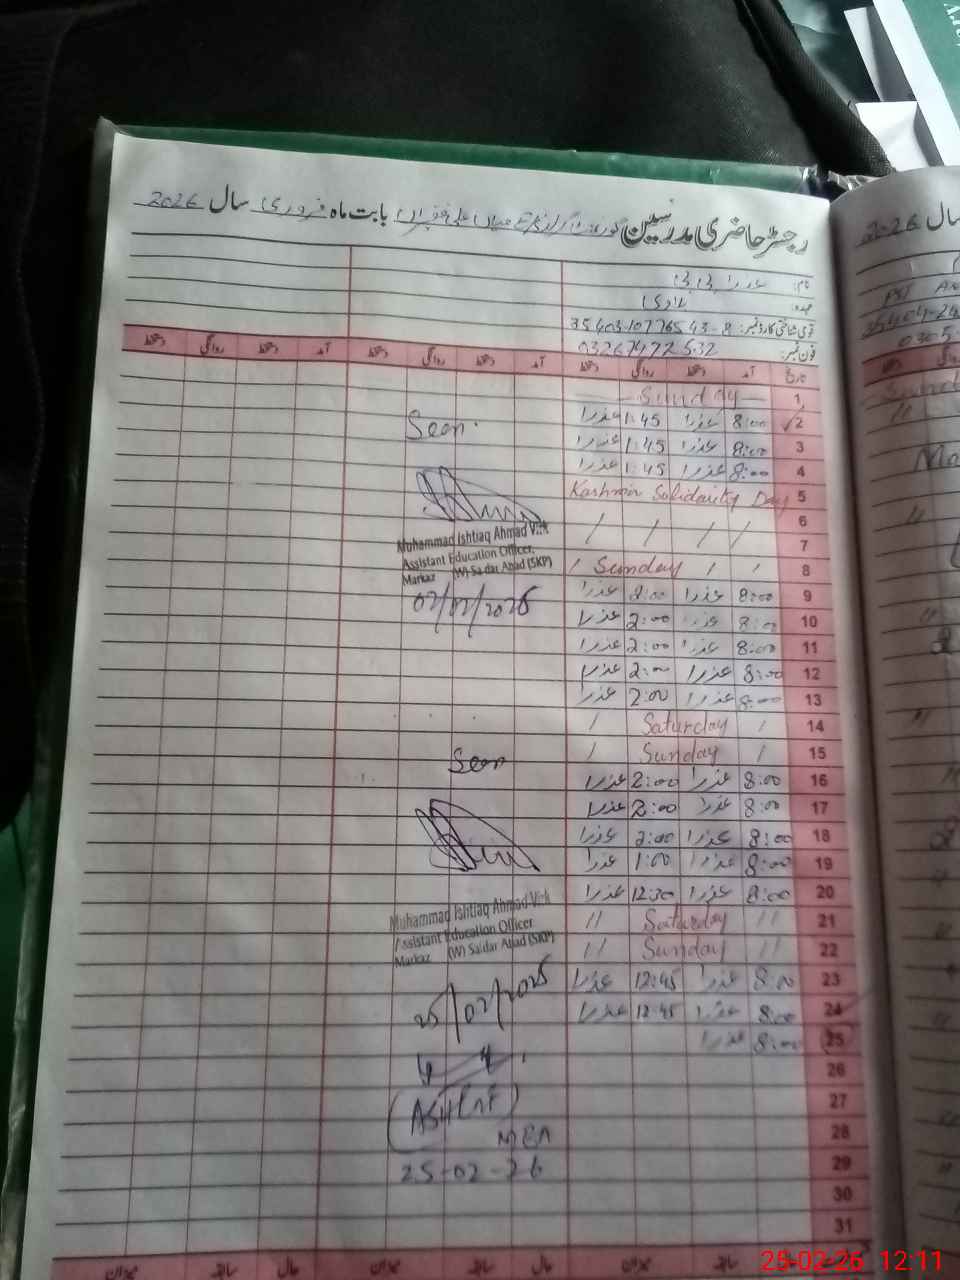 رجسٹر حاضری مدرسین بابت ماہ فروری سال 2026
نام: عذرا بی بی
عہدہ:
قومی شناختی کارڈ نمبر: 35403-1077654 3-8
فون نمبر: 03267472532
تاریخ آمد دستخط روانگی دستخط آمد دستخط روانگی دستخط آمد دستخط روانگی دستخط
1 Sunday
2 8:00 عذرا 1:45 عذرا
3 8:00 عذرا 1:45 عذرا
4 8:00 عذرا 1:45 عذرا
5 Kashmir Solidarity Day
6
7
8 Sunday
9 8:00 عذرا 2:00 عذرا
10 8:00 عذرا 2:00 عذرا
11 8:00 عذرا 2:00 عذرا
12 8:00 عذرا 2:00 عذرا
13 8:00 عذرا 2:00 عذرا
14 Saturday
15 Sunday
16 8:00 عذرا 2:00 عذرا
17 8:00 عذرا 2:00 عذرا
18 8:00 عذرا 2:00 عذرا
19 8:00 عذرا 1:00 عذرا
20 8:00 عذرا 12:30 عذرا
21 // Saturday //
22 // Sunday //
23 8:00 عذرا 12:45 عذرا
24 8:00 عذرا 12:45 عذرا
25 8:00 عذرا
26
27
28
29
30
31
Seen.
Muhammad Ishtiaq Ahmad Virk
Assistant Education Officer,
Markaz (W) Saidar Abad (SKP)
02/02/2026
Seen
Muhammad Ishtiaq Ahmad Virk
Assistant Education Officer
Markaz (W) Saidar Abad (SKP)
25/02/2026
MEA
25-02-26
میزان سابقہ حال میزان سابقہ حال
سال 2026
25-02-26 12:11